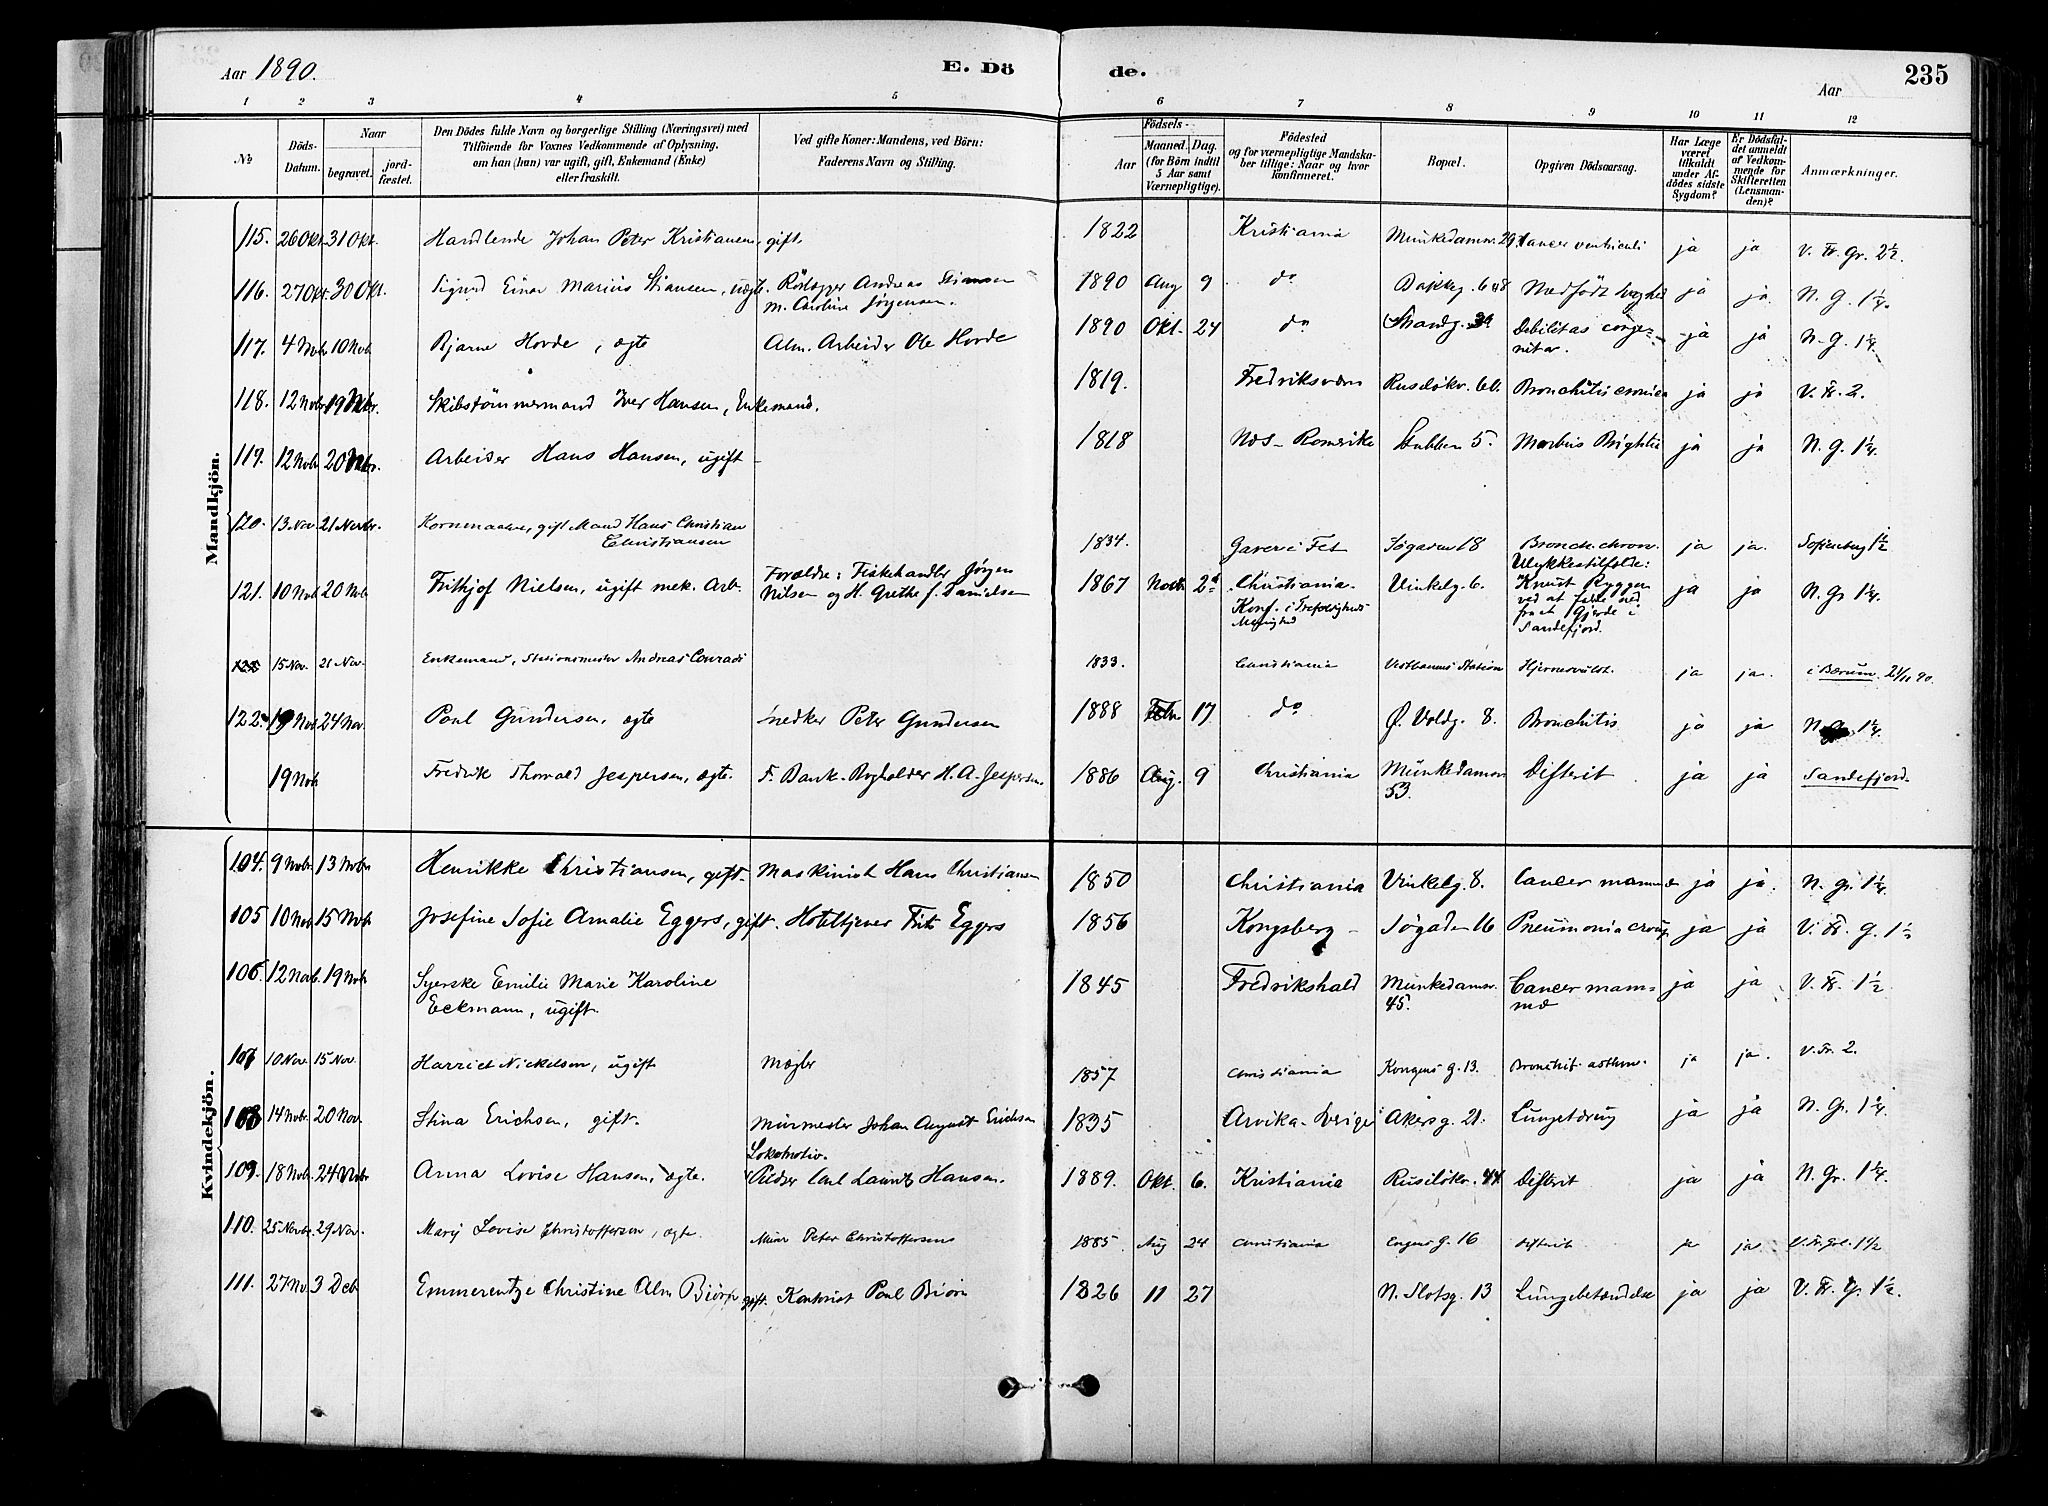 Aar 1890.
E. Dö
de.
Aar
235
1 2 3 4 5 6 7 8 9 10 11 12
№
Döds-
Datum.
Naar
begravet.
jord-
fæstet.
Den Dödes fulde Navn og borgerlige Stilling (Næringsvei) med
Tilföiende for Voxnes Vedkommende af Oplysning,
om han (hun) var ugift, gift, Enkemand (Enke)
eller fraskilt.
Ved gifte Koner: Mandens, ved Börn:
Faderens Navn og Stilling.
Födsels-
Aar
Maaned. Dag.
(for Börn indtil
5 Aar samt
Værnepligtige).
Födested
og for værnepligtige Mandska-
ber tillige: Naar og hvor
konfirmeret.
Bopæl.
Opgiven Dödsaarsag.
Har Læge
været
tilkaldt
under Af-
dödes sidste
Sygdom?
Er Dödsfal-
det anmeldt
af Vedkom-
mende for
Skifteretten
(Lensman-
den)?
Anmærkninger.
Mandkjön.
115. 26 Okt. 31 Okt. Handlende Johan Peter Kristiansen, gift. 1822 Kristiania Munkedamsv. 29 Cancer ventriculi ja ja V. Fr. Gr. 2½.
116. 27 Okt. 30 Okt. Sigurd Einar Marius Stiansen, uægt. Rörlægger Andreas Stiansen 1890 Aug 9 do Bakkeg. Medfödt Svaghed ja ja. N. G. 1¼.
m. Caroline Jörgensen.
117. 4 Nobr 10 Nob Bjarne Hovde, ægte Alm. Arbeider Ole Hovde 1890 Okt. 24 do Strandg. Debilitas conge- ja ja N. G. 1¼.
nitar.
118. 12 Nobr 19 Nobr. Skibstömmermand Iver Hansen, Enkemand. 1819. Fredriksværn Ruselökv. 6b. Bronchitis cronica ja ja V. Fr. 2.
119. 12 Nobr 20 Nobr. Arbeider Hans Hansen, ugift 1818 Næs - Romerike Stubben 5. Morbus Brightii ja ja N. G. 1¼.
120. 13 Nov 21 Novbr. Kornmaaler, gift Mand Hans Christian
Christiansen 1834. Gaver i Fet Søgaden 18 Bronch. chron. ja ja. Sofienberg 1½
121. 10 Nob 20 Nob Frithjof Nielsen, ugift mek. Arb. Forældre: Fiskehandler Jørgen
Nilsen og H. Grethe f. Danielsen 1867 Novbr 2d Christiania. Vinkelg. 6. Ulykkestilfælde: ja ja N. Gr 1¼.
Konf. i Trefoldigheds Menighed
Knust Ryggen
ved at falde ned
fra et Gjerde i
Sandefjord.
15 Nov. 21 Nov. Enkemand, Stationsmester Andreas Conradi 1833. Christiania Vestbanens Station Hjernesvulst. ja ja. i Bærum 21/11 90.
122. 19 Nob 24 Nov. Poul Gundersen, ægte Snedker Peter Gundersen 1888 Febr 17 do Ø. Voldg. 8. Bronchitis ja ja N. Gr. 1¼.
19 Nob Fredrik Thorvald Jespersen, ægte. F. Bank-Bogholder H. A. Jespersen. 1886 Aug. 9 Christiania Munkedamsv 53. Difterit ja ja Sandefjord.
Kvindekjön.
104. 9 Nobr. 13 Nobr Henrikke Christiansen, gift. Maskinist Hans Christiansen 1850 Christiania Vinkelg. 8. Cancer mammæ ja ja. N. gr. 1¼.
105 10 Nob 15 Nob Josefine Sofie Amalie Eggers, gift. Hoteltjener Frits Eggers 1856 Kongsberg Søgaden 16 Pneumonia croup ja ja V. Fr. G. 1½
106. 12 Nob. 19 Nob. Syerske Emilie Marie Karoline
Eckmann, ugift. 1845 Fredrikshald Munkedamsv. 45. Cancer mam-
mæ ja ja V. Fr. 1½
107 10 Nov. 15 Nov. Harriet Nickelsen, ugift Mægler 1857 Christiania Kongens G. 13. Bronchit. asthm. ja ja. V. Fr. 2.
108 14 Nobr. 20 Nov. Stina Erichsen, gift. Murmester Johan August Erichsen 1835 Arvika - Sverige Akersg. 21. Lungetæring ja ja N. Gr. 1¼.
109. 18 Nob. 24 Nobr Anna Lovise Hansen, ægte. Lokomotiv.
Pudser Carl Lauritz Hansen. 1889. Okt. 6. Kristiania Ruselökv. 44 Difterit ja ja N. Gr. 1¼.
110. 25 Novbr. 29 Nov. Mary Lovise Christoffersen, ægte. Murer Peter Christoffersens 1885. Aug 24 Christiania Engens G. 16 Difterit ja ja. V. Fr. Gr. 1½
111. 27 Nov. 3 Deb Emmerentze Christine Alm Biörn gift. Kontorist Poul Biörn 1826 11 27 N. Slotsg. 13 Lungebetændelse ja ja V. Fr. Gr. 1½.